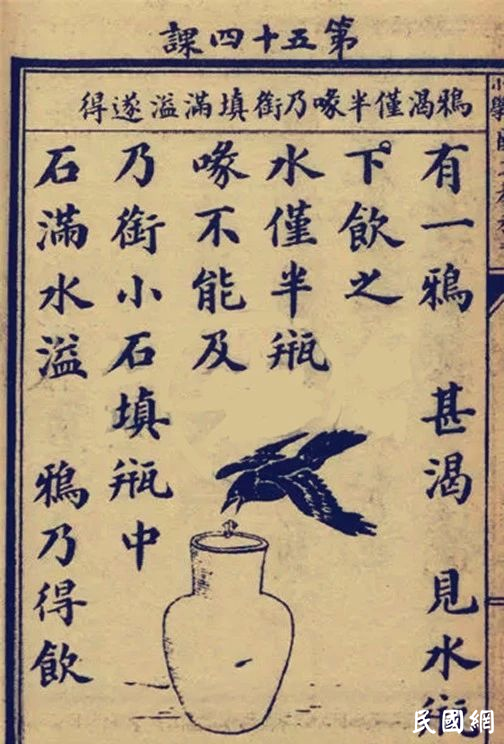 第五十四課
鴉渴僅半喙乃銜填滿溢遂得
有一鴉 甚渴 見水瓶
下飲之
水僅半瓶
喙不能及
乃銜小石填瓶中
石滿水溢 鴉乃得飲
民國網